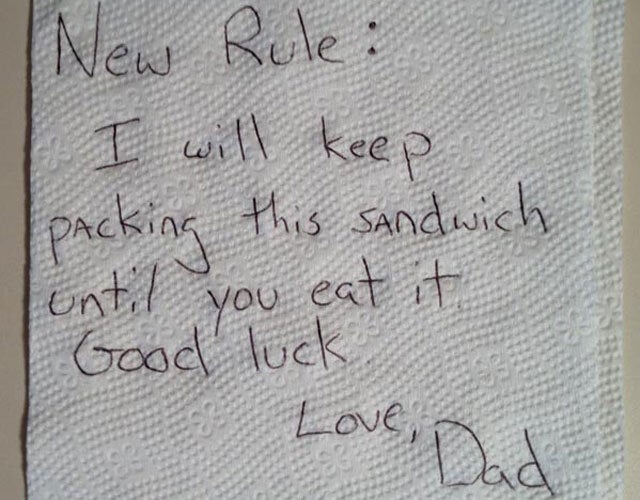 New Rule:
I will keep
packing this sandwich
until you eat it.
Good luck.
Love,
Dad